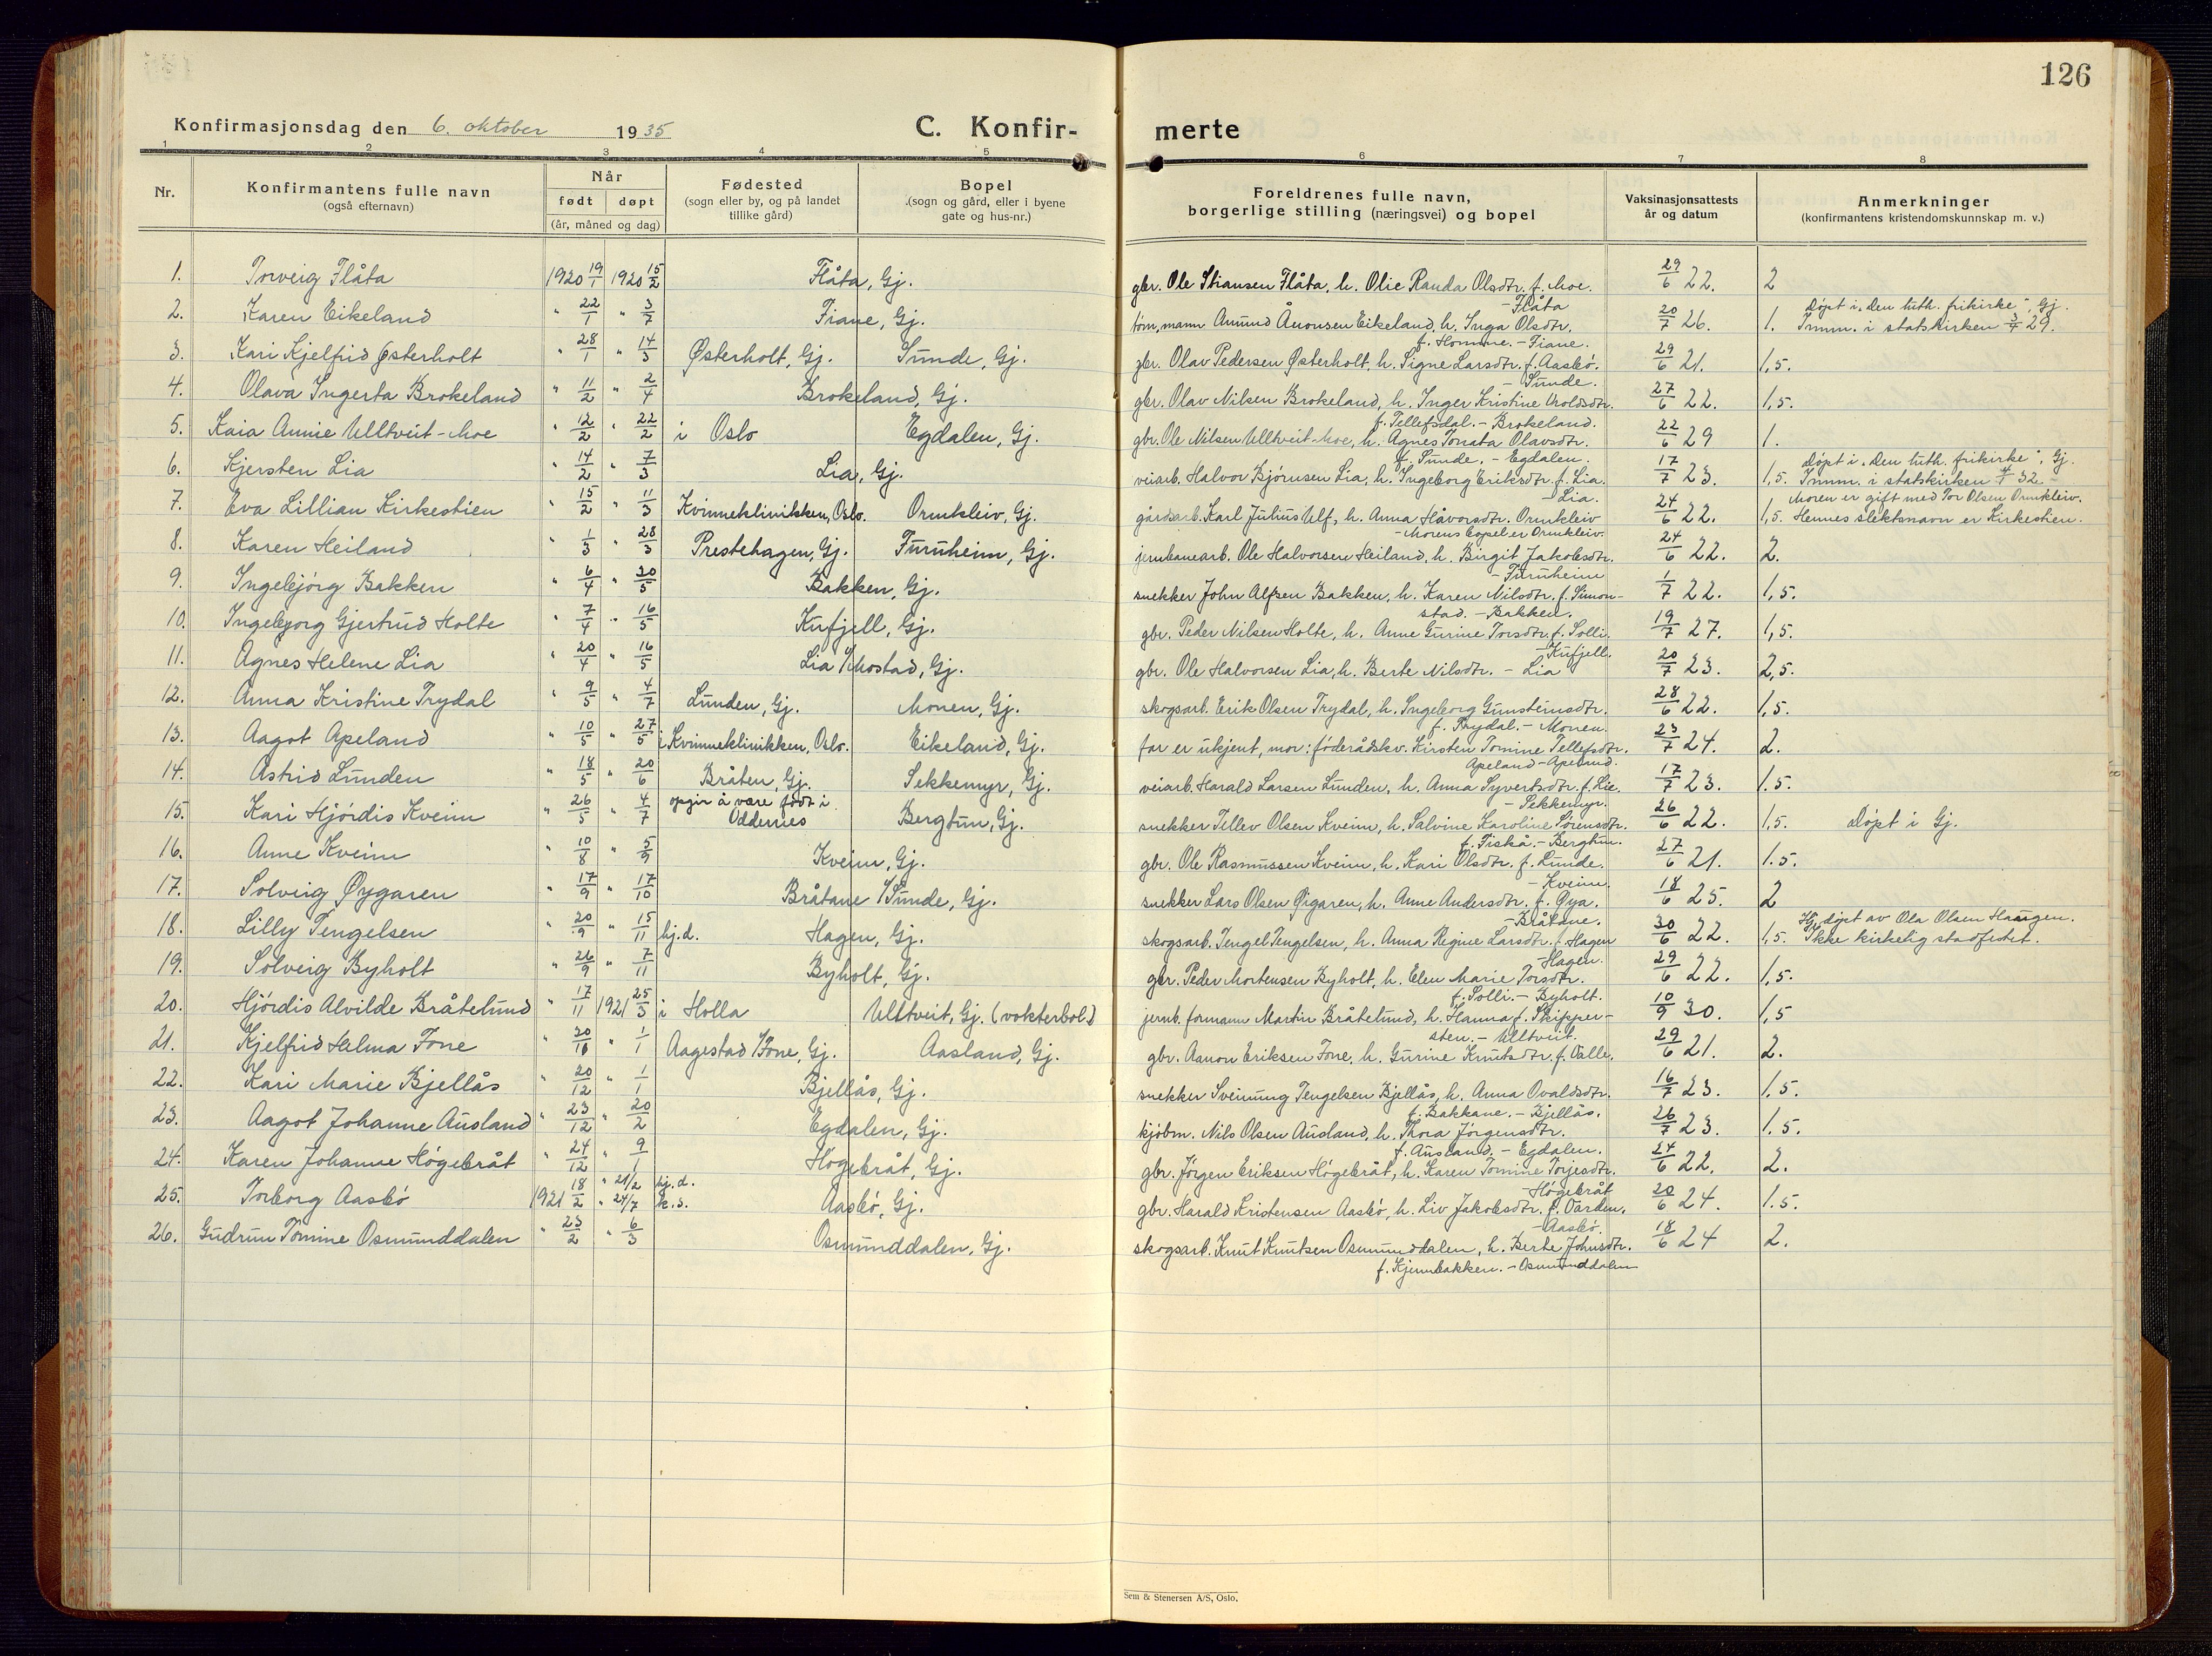 126
Konfirmasjonsdag den 6. oktober 1935
C. Konfir-
merte
1 2 3 4 5 6 7 8
Nr.
Konfirmantens fulle navn
(også efternavn)
Når
født døpt
(år, måned og dag)
Fødested
(sogn eller by, og på landet
tillike gård)
Bopel
(sogn og gård, eller i byene
gate og hus-nr.)
Foreldrenes fulle navn,
borgerlige stilling (næringsvei) og bopel
Vaksinasjonsattests
år og datum
Anmerkninger
(konfirmantens kristendomskunnskap m. v.)
1. Torveig Flåta 1920 19/1 1920 15/2 Flåta, Gj. gbr. Ole Stiansen Flåta, h. Olie Randa Olsdtr. f. Moe. 29/6 22. 2
- Flåta
2. Karen Eikeland " 22/1 " 3/7 Fiane, Gj. tøm.mann Amund Åvonsen Eikeland, h. Inga Olsdtr. 20/7 26. 1. Døpt i "Den luth. frikirke", Gj.
Innm. i statskirken 3/4 29.
f. Homme. - Fiane.
3. Kari Kjelfrid Østerholt " 28/1 " 14/3 Østerholt, Gj. Sunde, Gj. gbr. Olav Pedersen Østerholt, h. Signe Larsdtr. f. Aasbö. 29/6 21. 1,5.
- Sunde.
4. Olava Ingerta Brokeland " 11/2 " 2/4 Brokeland, Gj. gbr. Olav Nilsen Brokeland, h. Inger Kristine Uroldsdtr. 27/6 22. 1,5.
f. Tellefsdal. - Brokeland.
5. Kaia Annie Ulltveit-Moe " 12/2 " 22/2 i Oslo Egdalen, Gj. gbr. Ole Nilsen Ulltveit-Moe, h. Agnes Tonata Olavsdtr. 22/6 29 1.
f. Sunde. - Egdalen.
6. Kjersten Lia " 14/2 " 7/3 Lia, Gj. veiarb. Halvor Bjørnsen Lia, h. Ingeborg Eriksdtr. f. Lia. 17/7 23. 1,5. Døpt i "Den luth. frikirke", Gj.
Innm. i statskirken 4/7 32.
- Lia.
7. Eva Lillian Kirkestien " 15/2 " 11/3 Kvinneklinikken, Oslo. Ormkleiv, Gj. gårdsarb. Karl Julius Ulf, h. Anna Håvorsdtr. Ormkleiv 24/6 22. 1,5. Moren er gift med Tor Olsen Ormkleiv.
Hennes slektsnavn er Kirkestien.
- Morens bopel er Ormkleiv.
8. Karen Heiland " 1/3 " 28/3 Prestehagen, Gj. Furuheim, Gj. jernbanearb. Ole Halvorsen Heiland, h. Birgit Jakobsdtr. 24/6 22. 2.
- Furuheim
9. Ingebjörg Bakken " 6/4 " 30/5 Bakken, Gj. snekker John Alfsen Bakken, h. Karen Nilsdtr. f. Simon- 1/7 22. 1,5.
stad. - Bakken.
10. Ingebjorg Gjertrud Holte " 7/4 " 16/5 Kufjell, Gj. gbr. Peder Nilsen Holte, h. Anne Gurine Torsdtr. f. Solli. 19/7 27. 1,5.
- Kufjell.
11. Agnes Helene Lia " 20/4 " 16/5 Lia /Mostad, Gj. gbr. Ole Halvorsen Lia, h. Berte Nilsdtr. - Lia 20/7 23. 2,5.
12. Anna Kristine Trydal " 9/5 " 4/7 Lunden, Gj. Monen, Gj. skogsarb. Erik Olsen Trydal, h. Ingeborg Gunsteinsdtr. 28/6 22. 1,5.
f. Trydal. - Monen.
13. Aagot Apeland " 10/5 " 27/5 i Kvinneklinikken, Oslo. Eikeland, Gj. far er ukjent, mor: föderådskv. Kirsten Tomine Tellefsdtr. 23/7 24. 2.
Apeland - Apeland.
14. Astrid Lunden " 18/5 " 20/6 Bråten, Gj. Sekkemyr, Gj. veiarb. Harald Larsen Lunden, h. Anna Syvertsdtr. f. Lie. 17/7 23. 1.5.
- Sekkemyr.
15. Kari Hjördis Kveim " 26/5 " 4/7 opgir å være født i
Oddernes Bergtun, Gj. snekker Tellev Olsen Kveim, h. Salvine Karoline Sörensdtr. 26/6 22. 1,5. Døpt i Gj.
f. Fiskå. - Bergtun.
16. Anne Kveim " 10/8 " 5/9 Kveim, Gj. gbr. Ole Rasmussen Kveim, h. Kari Olsdtr. f. Lunde. 27/6 21. 1.5.
- Kveim.
17. Solveig Øygaren " 17/9 " 17/10 Bråtane /Sunde, Gj. snekker Lars Olsen Øigaren, h. Anne Andersdtr. f. Øya. 18/6 25. 2
- Bråtane.
18. Lilly Tengelsen " 20/9 " 15/11 hj.d. Hagen, Gj. skogsarb. Tengel Tengelsen, h. Anna Regine Larsdtr. f. Hagen 30/6 22. 1,5. Hj. døpt av Ola Olsen Haugen.
Ikke kirkelig stadfestet.
- Hagen.
19. Solveig Byholt " 26/9 " 7/11 Byholt, Gj. gbr. Peder Mortensen Byholt, h. Elen Marie Torsdtr. 29/6 22. 1,5.
f. Solli. - Byholt.
20. Hjördis Alvilde Bråtelund " 17/11 1921 25/3 i Holla Ulltveit, Gj. (vokterbol.) jernb. formann Martin Bråtelund, h. Hanna f. Skipper- 10/9 30. 1,5
sten. - Ulltveit.
21. Kjelfrid Helma Tone " 20/10 " 1/1 Aagestad /Tone, Gj. Aasland, Gj. gbr. Aanon Eriksen Tone, h. Gurine Knutsdtr. f. Dalle. 29/6 21. 2.
22. Kari Marie Bjellås " 20/12 " 1/1 Bjellås, Gj. snekker Sveinung Tengelsen Bjellås, h. Anna Ovaldsdtr. 16/7 23. 1.5.
f. Bakkane. - Bjellås.
23. Aagot Johanne Ausland " 23/12 " 20/2 Egdalen, Gj. kjöbm. Nils Olsen Ausland, h. Thora Jörgensdtr. 26/7 23. 1.5.
f. Ausland. - Egdalen.
24. Karen Johanne Högebråt " 24/12 " 9/1 Högebråt, Gj. gbr. Jörgen Eriksen Högebråt, h. Karen Tomine Torjesdtr. 24/6 22. 2.
- Högebråt
25. Torborg Aasbö 1921 18/2 " 21/2 hj.d.
" 24/7 k.s. Aasbö, Gj. gbr. Harald Kristensen Aasbö, h. Liv Jakobsdtr. f. Garden. 20/6 24. 1.5.
- Aasbö.
26. Gudrun Tomine Osmunddalen " 23/2 " 6/3 Osmunddalen, Gj. skogsarb. Knut Knutsen Osmunddalen, h. Berte Johnsdtr. 18/6 24 2.
f. Kjennbakken. - Osmunddalen
Sem & Stenersen A/S, Oslo.